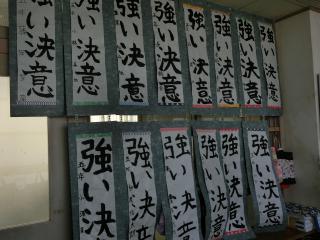 強い決意
強い決意
強い決意
強い決意
強い決意
強い決意
強い決意
強い決意
強い決
強い決意
強い決
強い決意
強い決意
強い決意